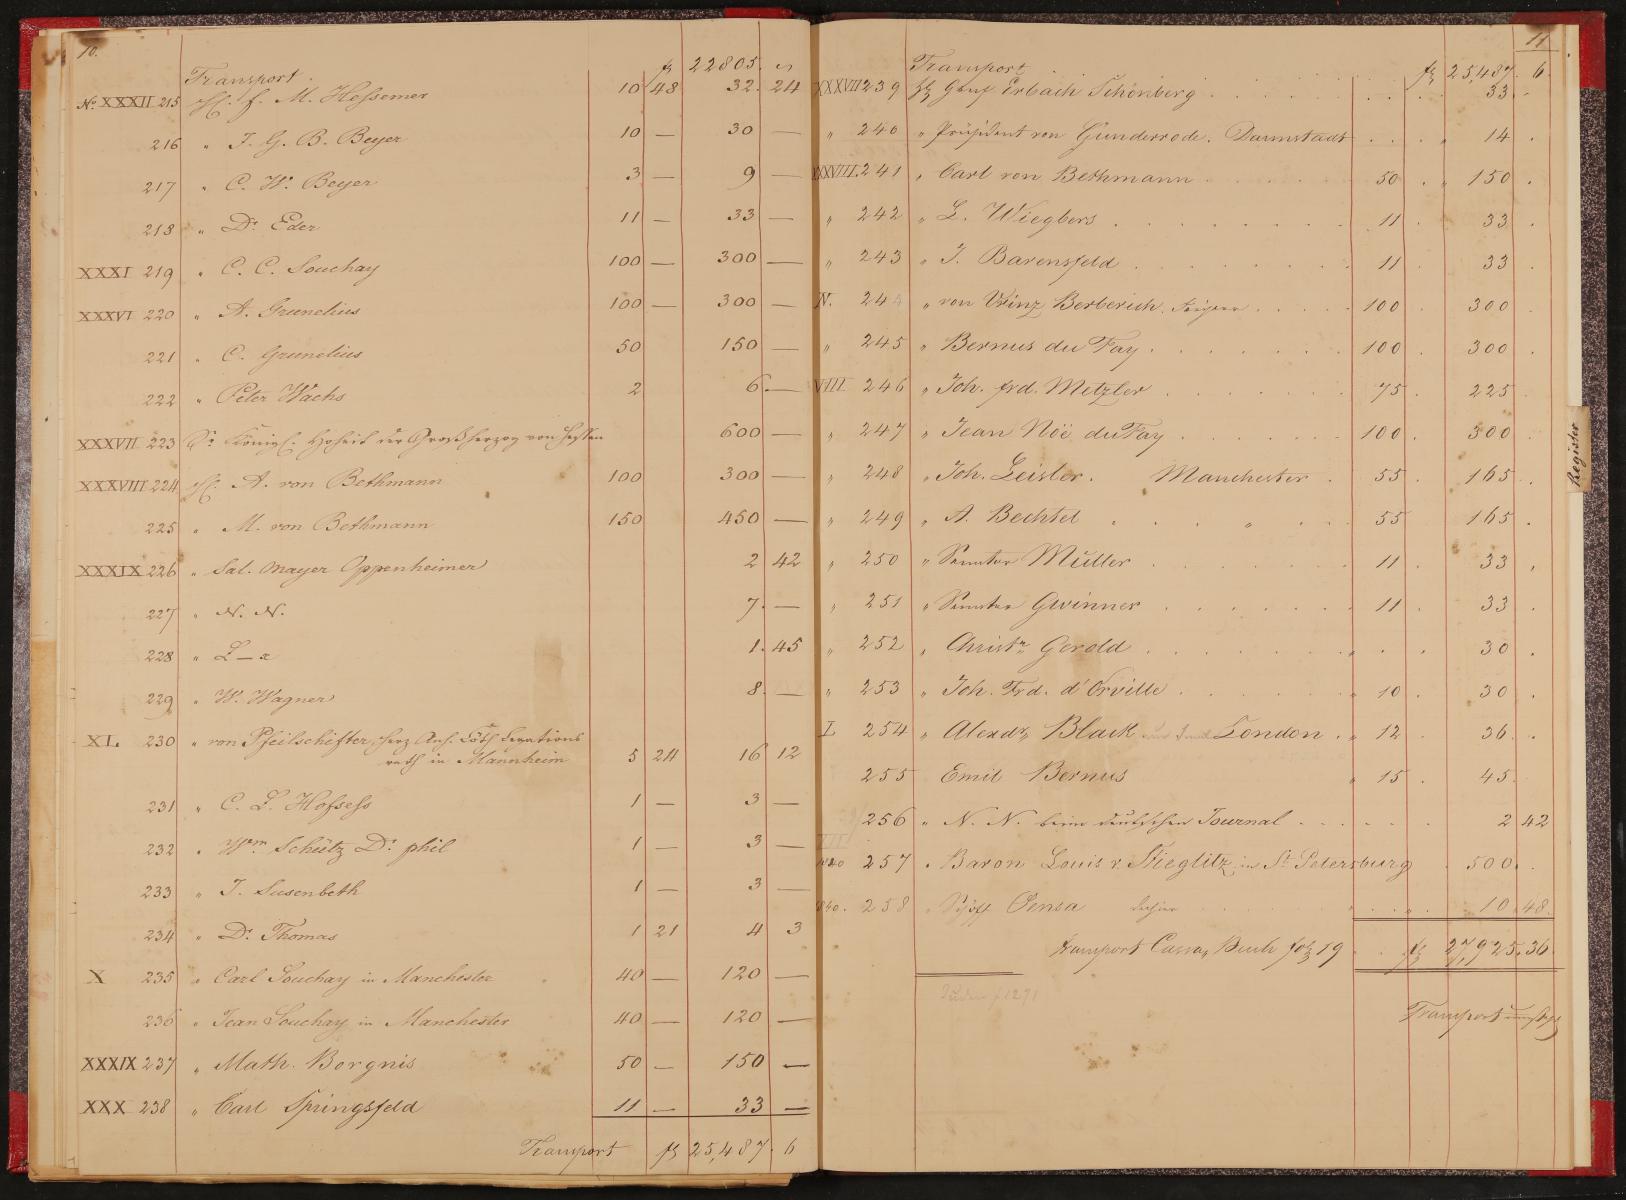 10.
Transport . fl 22805. "
No. XXXII 215 HH. f. M. Hessemer 10 48 32. 24
216 " J. G. B. Beyer 10 — 30 —
217 " C. W. Beyer 3 — 9 —
218 " Dr. Eder 11 — 33 —
XXXI 219 " C. C. Souchay 100 — 300 —
XXXVI 220 " A. Grunelius 100 — 300 —
221 " C. Grunelius 50 150 —
222 " Peter Wachs 2 6. —
XXXVII 223 Sr. Königl. Hoheit der Großherzog von Hessen 600 —
XXXVIII 224 HH. A. von Bethmann 100 300 —
225 " M. von Bethmann 150 450 —
XXXIX 226 " Sal. Mayer Oppenheimer 2 42
227 " N. N. 7. —
228 " L—a 1. 45
229 " W. Wagner 8. —
XL. 230 " von Pfeilschifter, Herz. Anh. Cöth. Legations
rath in Mannheim 5 24 16 12
231 " C. L. Hofsess 1 — 3 —
232 " Wm. Schütz Dr. phil 1 — 3 —
233 " J. Susenbeth 1 — 3 —
234 " Dr. Thomas 1 21 4 3
X 235 " Carl Souchay in Manchester 40 — 120 —
236 " Jean Souchay in Manchester 40 — 120 —
XXXIX 237 " Math. Borgnis 50 — 150 —
XXX 238 " Carl Springsfeld 11 — 33 —
Transport fl 25,487. 6
11
Transport fl 25,487. 6.
XXXVII 239 Graf Erbach Schönberg 33. -
" 240 " Präsident von Gunderrode. Darmstadt " 14 .
XXXVIII. 241 " Carl von Bethmann 50 . " 150 .
" 242 " L. Wiegbers 11 . 33 .
" 243 " J. Barensfeld 11 . 33 .
N. 244 " von Vrinz Berberich. 100 . 300 .
" 245 " Bernus du Fay 100 . 300 .
VIII. 246 " Joh. frd. Metzler 75 . 225 .
" 247 " Jean Nöé du Fay 100 . 300 .
" 248 " Joh. Leisler . Manchester . 55 . 165 .
" 249 " A. Bechtel " 55 165 .
" 250 " Senator Müller 11 . 33 .
" 251 " Senator Gwinner 11 . 33 .
" 252 " Christn. Gerold " 30 .
" 253 " Joh. Frd. d'Orville " 10 . 30 .
L 254 " Alexdr. Black London . " 12 . 36 .
255 Emil Bernus " 15 . 45 .
256 " N. N. beim deutschen Journal 2 42
257 " Baron Louis v. Stieglitz in St. Petersburg 500. .
1840. 258 " Schöff Pensa 10. 48.
Transport Cassa Buch fol 19 fl 27,925. 36.
Transport
Register